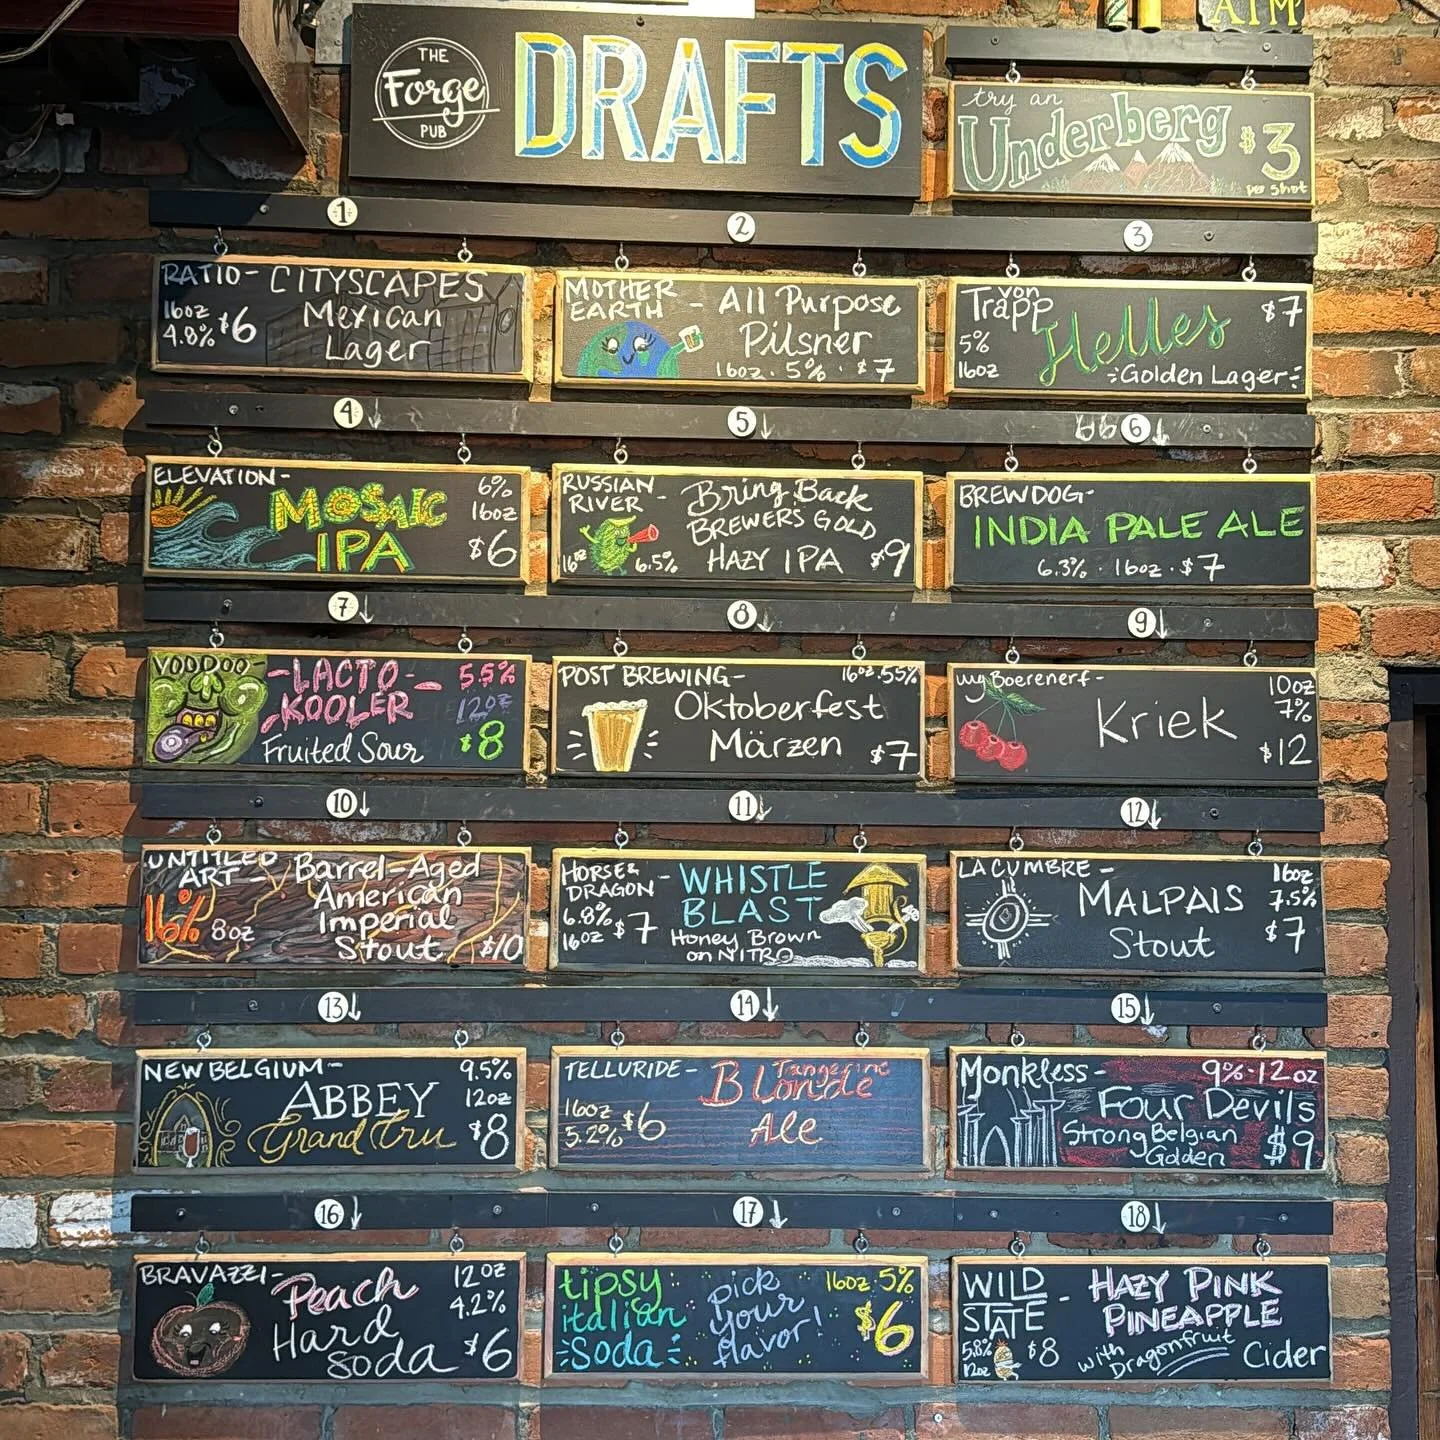 ATM
THE
Forge
PUB
DRAFTS
try an
Underberg $3
per shot
1
RATIO - CITYSCAPES
Mexican
Lager
16oz
4.8% $6
2
MOTHER
EARTH - All Purpose
Pilsner
16oz · 5% · $7
3
von
Trapp
Helles
$7
5%
16oz
Golden Lager
4
ELEVATION -
MOSAIC
IPA
6%
16oz
$6
5
RUSSIAN
RIVER - Bring Back
BREWERS GOLD
HAZY IPA
16oz 6.5% $9
6
BREWDOG -
INDIA PALE ALE
6.3% · 16oz · $7
7
VOODOO
- LACTO -
KOOLER
Fruited Sour
5.5%
12oz
$8
8
POST BREWING -
16oz · 5.5%
Oktoberfest
Märzen $7
9
Boerenerf -
Kriek
10oz
7%
$12
10
UNTITLED
ART - Barrel-Aged
American
Imperial
Stout
16% 8oz $10
11
HORSE &
DRAGON - WHISTLE
BLAST
6.8% $7
16oz
Honey Brown
on NITRO
12
LA CUMBRE -
MALPAIS
Stout
16oz
7.5%
$7
13
NEW BELGIUM -
ABBEY
Grand Cru
9.5%
12oz
$8
14
TELLURIDE -
Tangerine
Blonde
Ale
16oz
5.2% $6
15
Monkless -
9% · 12oz
Four Devils
Strong Belgian
Golden $9
16
BRAVAZZI -
Peach
Hard
Soda
12oz
4.2%
$6
17
tipsy
italian
Soda
pick
your
flavor!
16oz 5%
$6
18
WILD
STATE - HAZY PINK
PINEAPPLE
with
Dragonfruit
Cider
5.8%
12oz $8